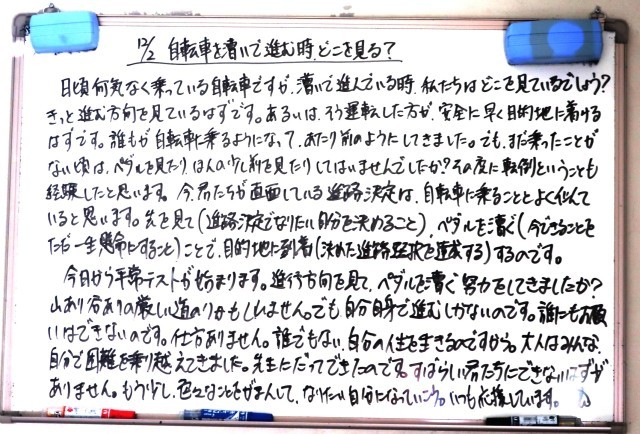 12/2 自転車を漕いで進む時、どこを見る?
日頃何気なく乗っている自転車ですが、漕いで進んでいる時、私たちはどこを見ているでしょう?
きっと進む方向を見ているはずです。あるいは、そう運転した方が、安全に早く目的地に着ける
はずです。誰もが自転車に乗るようになって、あたり前のようにしてきました。でも、まだ乗ったことが
ない頃は、ペダルを見たり、ほんの少し前を見たりしてはいませんでしたか?その度に転倒ということも
経験したと思います。今、君たちが直面している進路決定は、自転車に乗ることとよく似て
いると思います。先を見て(進路決定でなりたい自分を決めること)、ペダルを漕ぐ(今できることを
ただ一生懸命にすること)ことで、目的地に到着(決めた進路選択を達成する)するのです。
今日から平常テストが始まります。進行方向を見て、ペダルを漕ぐ努力をしてきましたか?
山あり谷ありの厳しい道のりかもしれません。でも自分自身で進むしかないのです。誰にもお願
いはできないのです。仕方ありません。誰でもない、自分の人生を生きるのですから。大人はみんな、
自分で困難を乗り越えてきました。先生にだってできたのです。すばらしい君たちにできないはずが
ありません。もう少し、色々なことをがまんして、なりたい自分になっていこう。いつも応援しています。